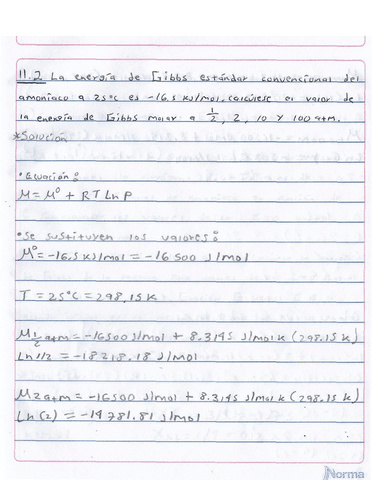 11.2 La energía de Gibbs estándar convencional del
amoniaco a 25°C es -16.5 kJ/mol. calcúlese el valor de
la energía de Gibbs molar a 1/2, 2, 10 y 100 atm.
*Solución
•Ecuación:
M = M° + RT Ln P
•Se sustituyen los valores:
M° = -16.5 kJ/mol = -16 500 J/mol
T = 25°C = 298.15 K
M 1/2 atm = -16500 J/mol + 8.3145 J/mol K (298.15 K)
Ln 1/2 = -18218.18 J/mol
M 2 atm = -16500 J/mol + 8.3145 J/mol K (298.15 K)
Ln (2) = -14781.81 J/mol
Norma